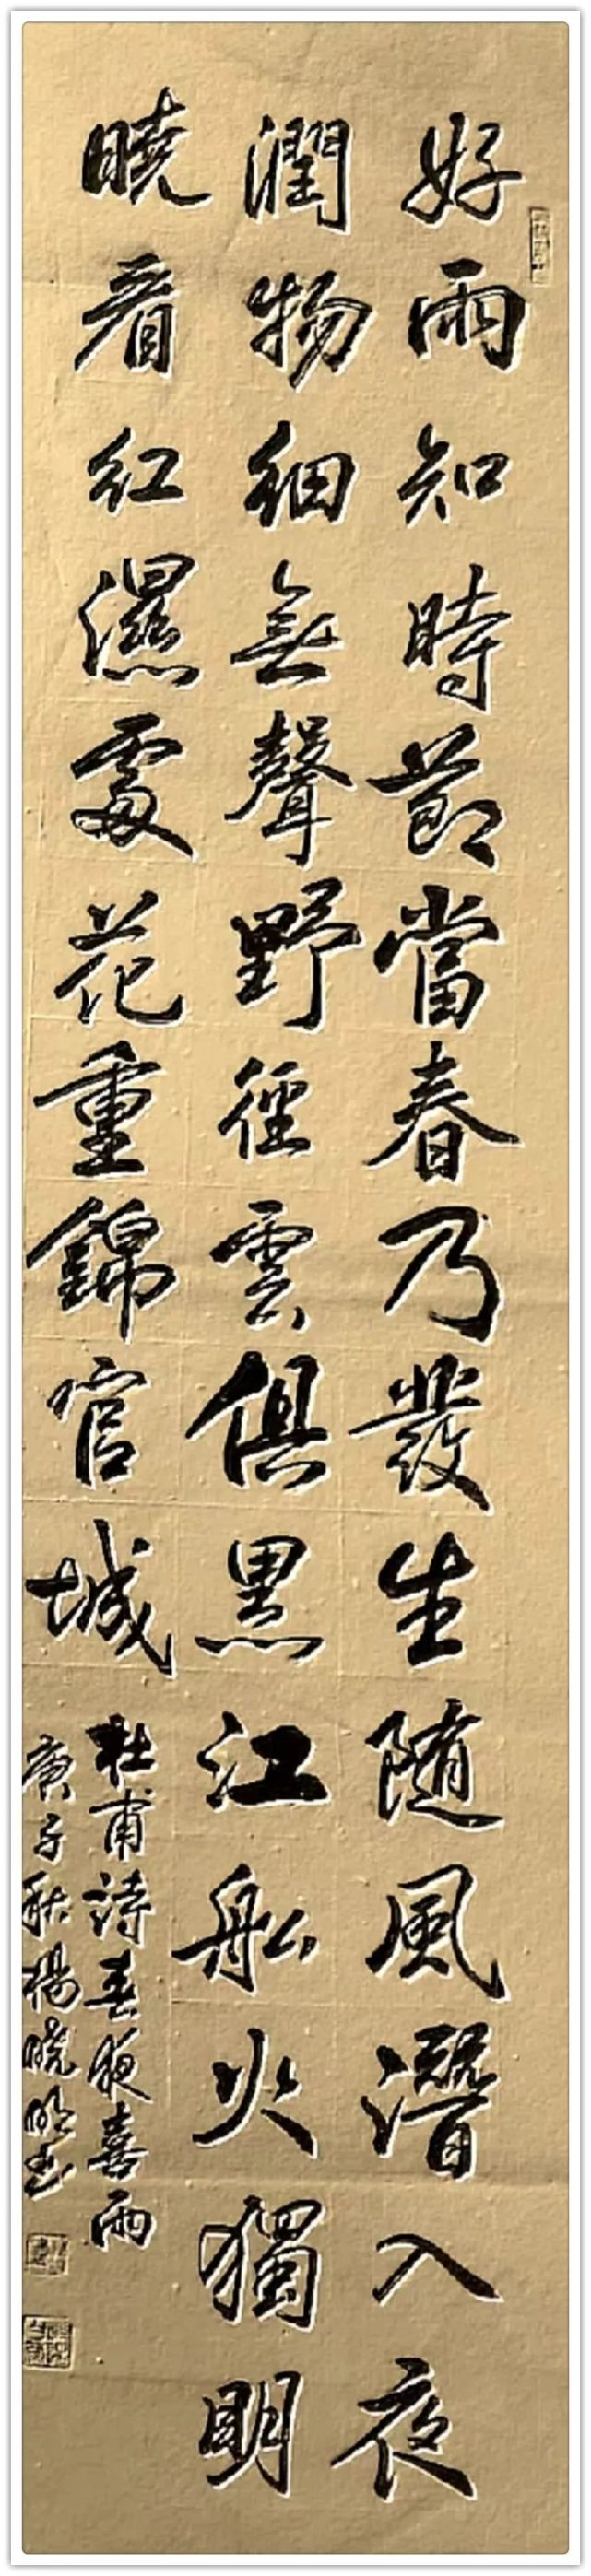 好雨知時節當春乃發生随風潛入夜
潤物細無聲野徑雲俱黑江船火獨明
曉看紅濕處花重錦官城
杜甫詩春夜喜雨
庚子秋楊曉明书